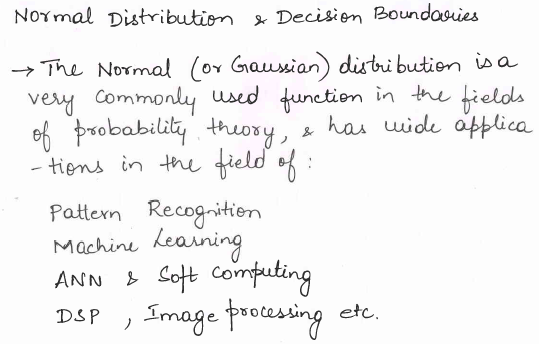 Normal Distribution & Decision Boundaries
→ The Normal (or Gaussian) distribution is a
very commonly used function in the fields
of probability theory, & has wide applica
-tions in the field of :
Pattern Recognition
Machine Learning
ANN & Soft computing
DSP , Image processing etc.